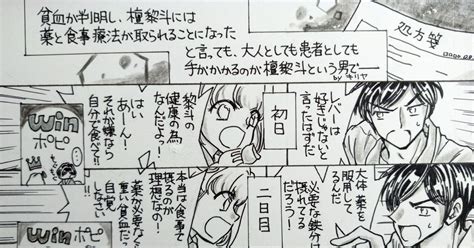 貧血が判明し、檀黎斗には
薬と食事療法が取られることになった
と言っても、大人としても患者としても
手がかかるのが檀黎斗という男で━
by キリヤ
処方箋
レバーは
好きじゃないと
言ったはずだ
初日
黎斗の
健康の為
なんだよっ!
はい
あーーん!
それが嫌なら
自分で食べる!!
win
ポピ
大体 薬を
服用して
るんだ
必要な鉄分は
摂れてる
だろう!
二日目
本当は食事で
摂るのが
理想なの!
薬が必要な
重い貧血だって
自覚
しなさい
win
ポピ